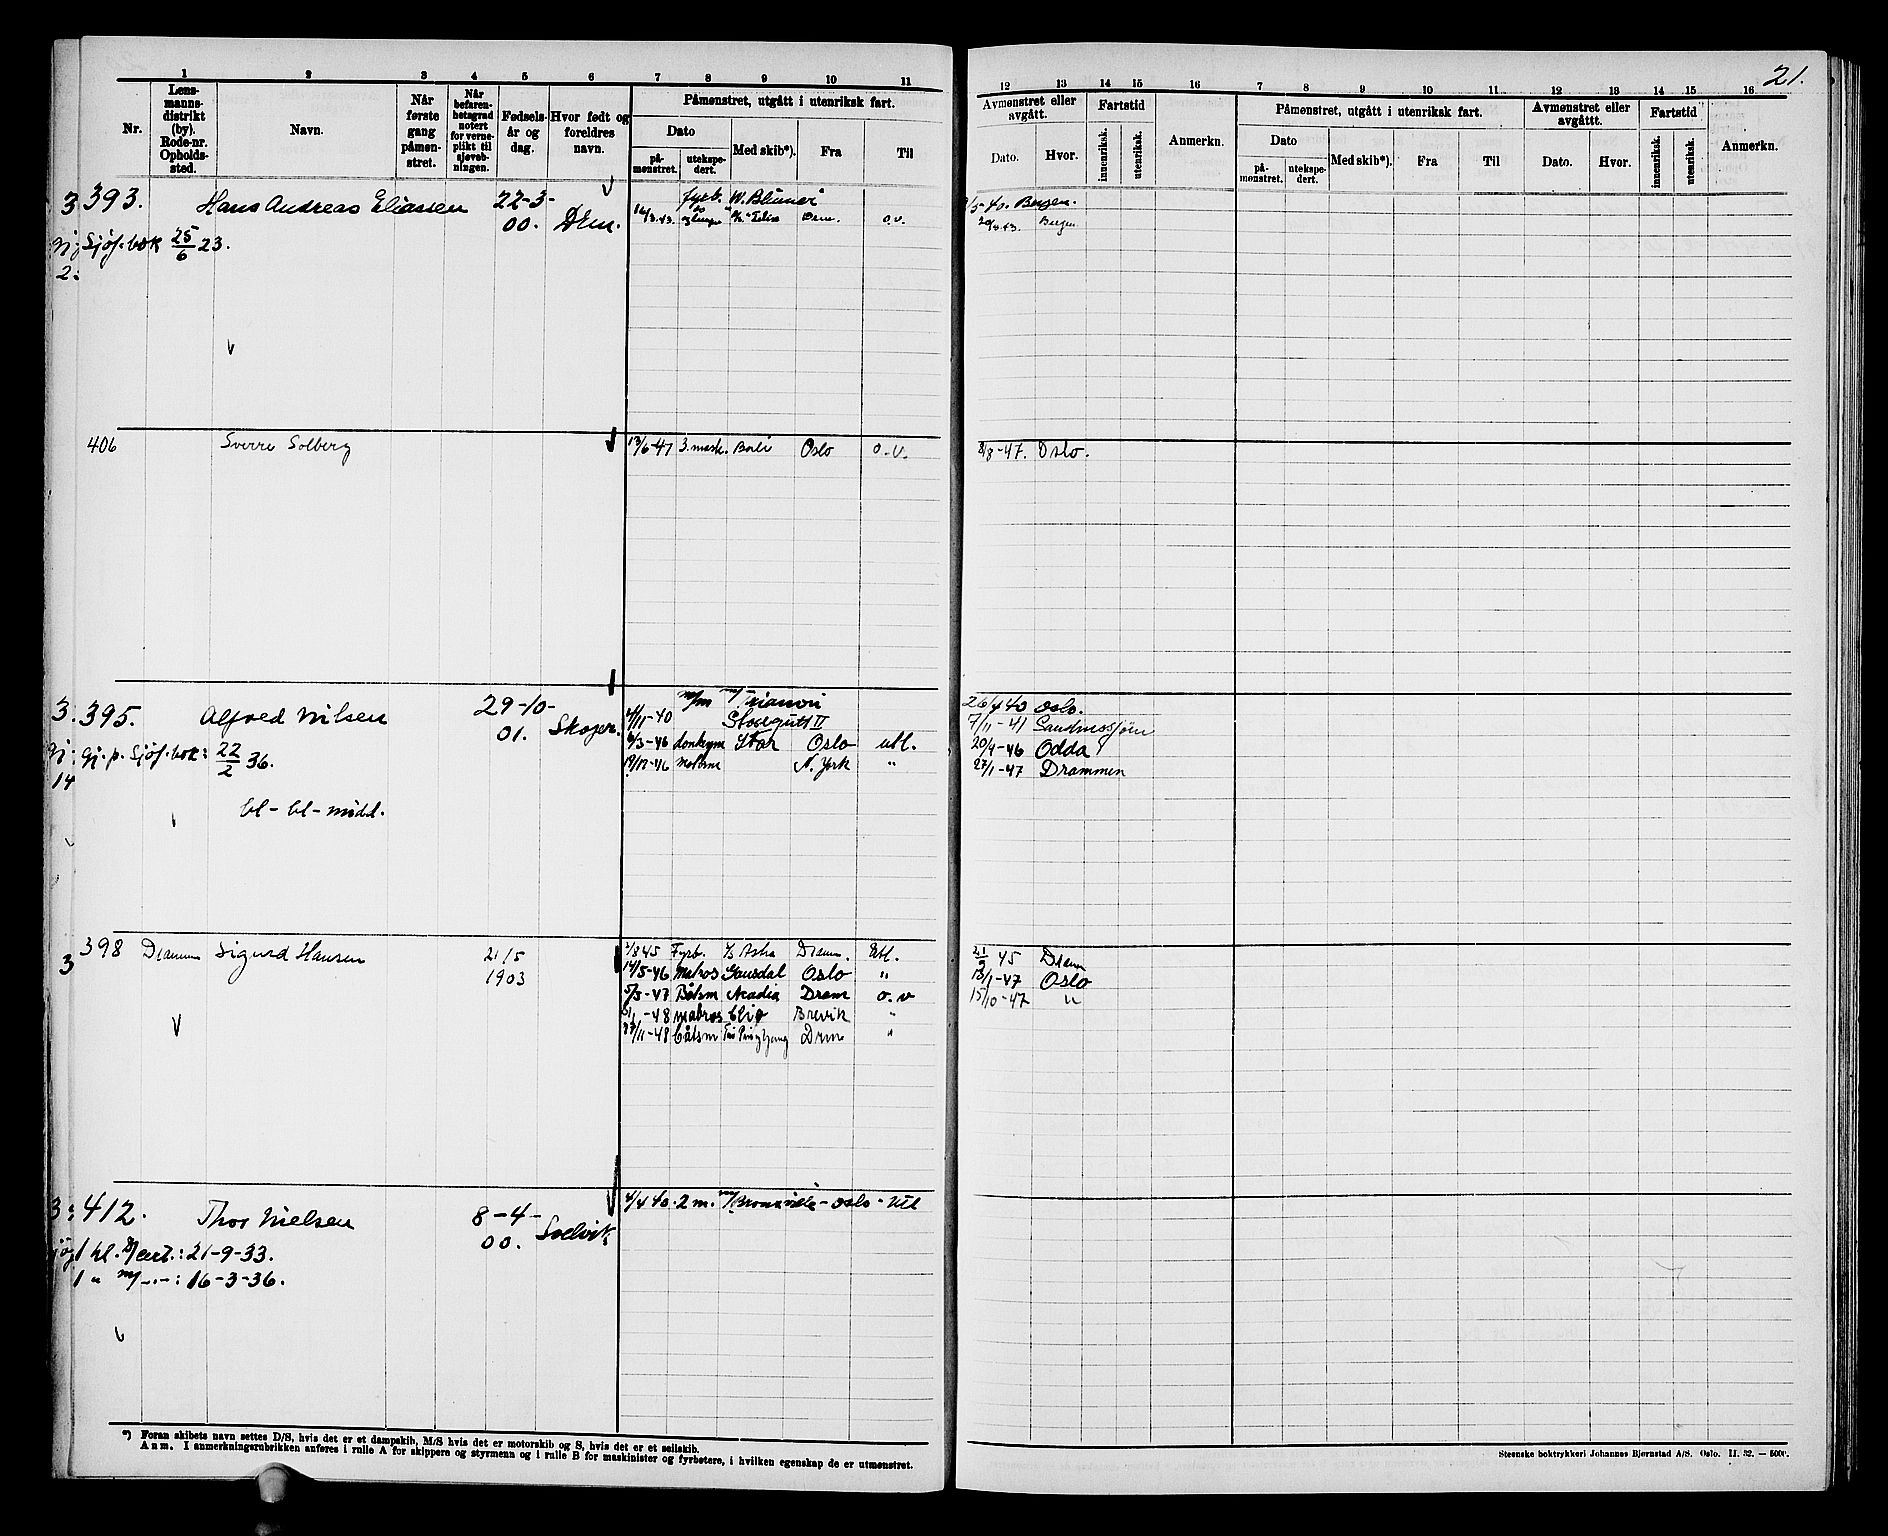 21.
1 2 3 4 5 6 7 8 9 10 11
Nr.
Lensmannsdistrikt (by). Rode-nr. Opholdssted.
Navn.
Når første gang påmønstret.
Når befarenbetagrad notert for verneplikt til sjøvebningen.
Fødselsår og dag.
Hvor født og foreldres navn.
Påmønstret, utgått i utenriksk fart.
Dato
påmønstret.
utekspedert.
Med skib*).
Fra
Til
12 13 14 15 16 7 8 9 10 11 12 13 14 15 16
Avmønstret eller avgått.
Dato.
Hvor.
Fartstid
innenriksk.
utenriksk.
Anmerkn.
Påmønstret, utgått i utenriksk fart.
Dato
påmønstret.
utekspedert.
Med skib*).
Fra
Til
Avmønstret eller avgåttt.
Dato.
Hvor.
Fartstid
innenriksk.
utenriksk.
Anmerkn.
3 393. Hans Andreas Eliassen 22-3-00. Drm.
Sjøf. bok 25/6 23.
2:
fyrb. W. Blumer Bergen.
Drm. o.v. Bergen
406 Sverre Solberg 13/6-47 3. mask. Borli Oslo o.v. 8/8-47. Oslo.
3. 395. Alfred Nilsen 29-10-01. Skoger.
gj. p. Sjøf. bok: 22/2 36.
14
bl - bl - midd.
m/m Trianon 26/4 40 Oslo.
4/11-40 Storegutt II 7/11-41 Sandnessjøen
6/3-46 donkeym Star Oslo utl. 20/4-46 Odda
N. York " 27/1-47 Drammen
3 398 Dramm Sigurd Hansen 21/5 1903
1/8 45 Fyrb. Astra Dramm. Utl. 21/9 45 Dram
14/5-46 Matros Gausdal Oslo " 13/1-47 Oslo
5/5-47 Båtsm Acadia Dram o.v 15/10-47 "
5/1-48 matros Clio Brevik "
27/11-48 båtsm Drm "
3: 412. Thor Nielsen 8-4-00. Svelvik
1 kl. S/cert.: 21-9-33.
1 " m/-.-: 16-3-36.
4/4 40. 2 m. m/ Bronxville - Oslo - Utl
*) Foran skibets navn settes D/S, hvis det er et dampskib, M/S hvis det er motorskib og S, hvis det er et seilskib.
Anm. I anmerkningsrubrikken anføres i rulle A for skippere og styrmenn og i rulle B for maskinister og fyrbøtere, i hvilken egenskap de er utmønstret.
Steenske boktrykkeri Johannes Bjørnstad A/S. Oslo. II. 32. — 5000.